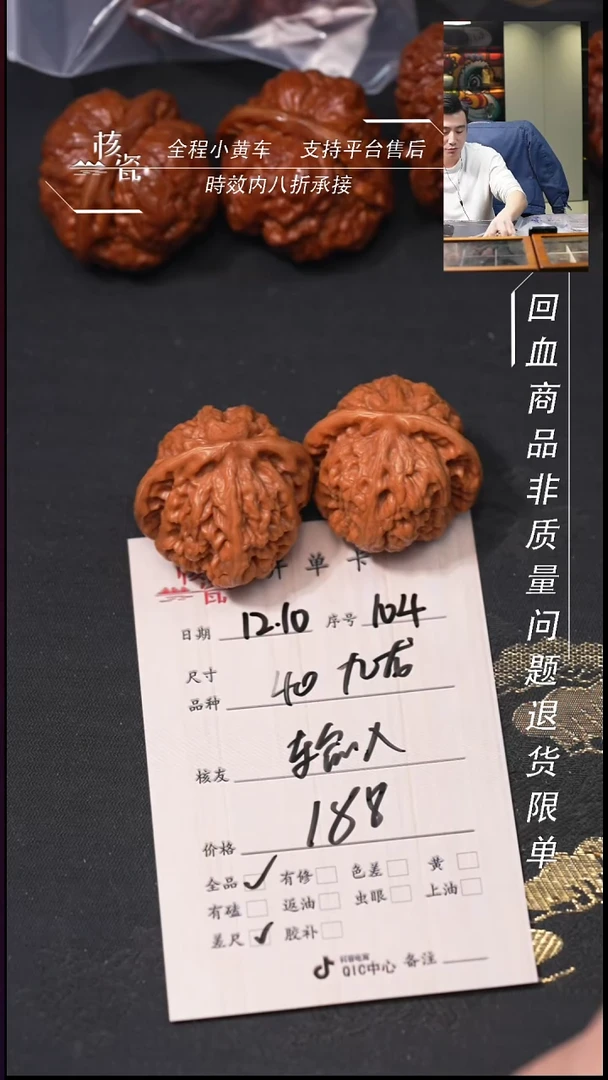 核瓷
全程小黄车 支持平台售后
時效内八折承接
回血商品非质量问题退货限单
开单卡
日期 12.10 序号 104
尺寸
品种 40 九龙
核友
价格 188
全品 ✓ 有修 色差 黄
有磕 返油 虫眼 上油
差尺 ✓ 胶补
抖音电商
QIC中心 备注